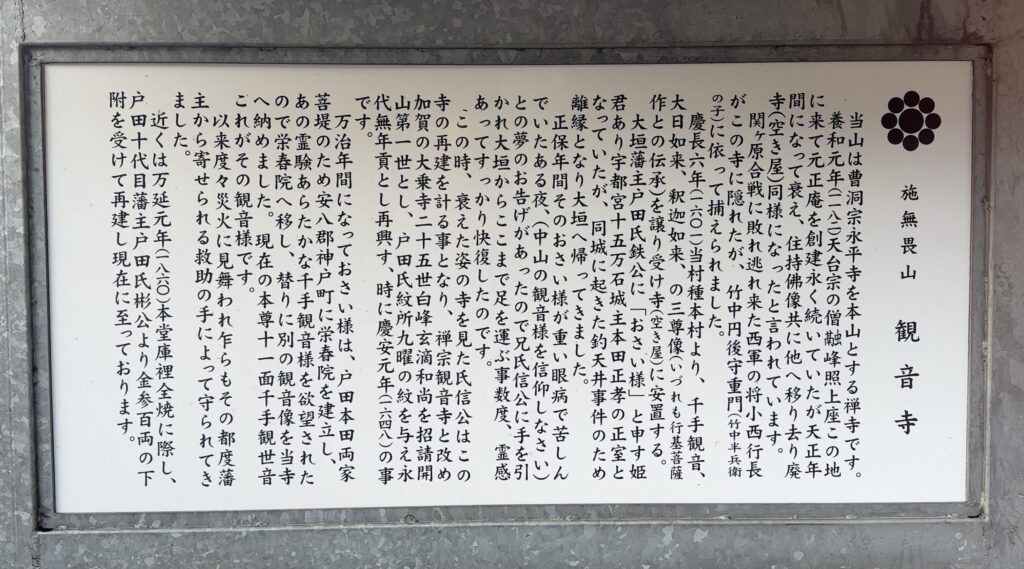 施無畏山 観音寺
当山は曹洞宗永平寺を本山とする禅寺です。
養和元年(一一八二)天台宗の僧融峰照上座この地
に来て元正庵を創建永く続いていたが天正年
間になって衰え、住持佛像共に他へ移り去り廃
寺(空き屋)同様になったと言われています。
関ヶ原合戦に敗れ逃れ来た西軍の将小西行長
がこの寺に隠れたが、竹中円後守重門(竹中半兵衛
の子)に依って捕えられました。
慶長六年(一六〇一)当村種本村より、千手観音、
大日如来、釈迦如来、の三尊像(いづれも行基菩薩
作との伝承)を譲り受け寺(空き屋)に安置する。
大垣藩主戸田氏鉄公に「おさい様」と申す姫
君あり宇都宮十五万石城主本田正孝の正室と
なっていたが、同城に起きた釣天井事件のため
離縁となり大垣へ帰ってきました。
正保年間そのおさい様が重い眼病で苦しん
でいたある夜、(中山の観音様を信仰しなさい)
との夢のお告げがあったので兄氏信公に手を引
かれ大垣からここまで足を運ぶ事数度、霊感
あってすっかり快復したのです。
この時、衰えた姿の寺を見た氏信公はこの
寺の再建を計る事となり、禅宗観音寺と改め
加賀の大乗寺二十五世白峰玄滴和尚を招請開
山第一世とし、戸田氏紋所九曜の紋を与え永
代無年貢とし再興す、時に慶安元年(一六四八)の事
です。
万治年間になっておさい様は、戸田本田両家
菩堤のため安八郡神戸町に栄春院を建立し、
あの霊験あらたかな千手観音様を欲望された
ので栄春院へ移し、替りに別の観音像を当寺
へ納めました。現在の本尊十一面千手観世音
これがその観音様です。
以来度々災火に見舞われ乍らもその都度藩
主から寄せられる救助の手によって守られてき
ました。
近くは万延元年(一八六〇)本堂庫裡全焼に際し、
戸田十代目藩主戸田氏彬公より金参百両の下
附を受けて再建し現在に至っております。